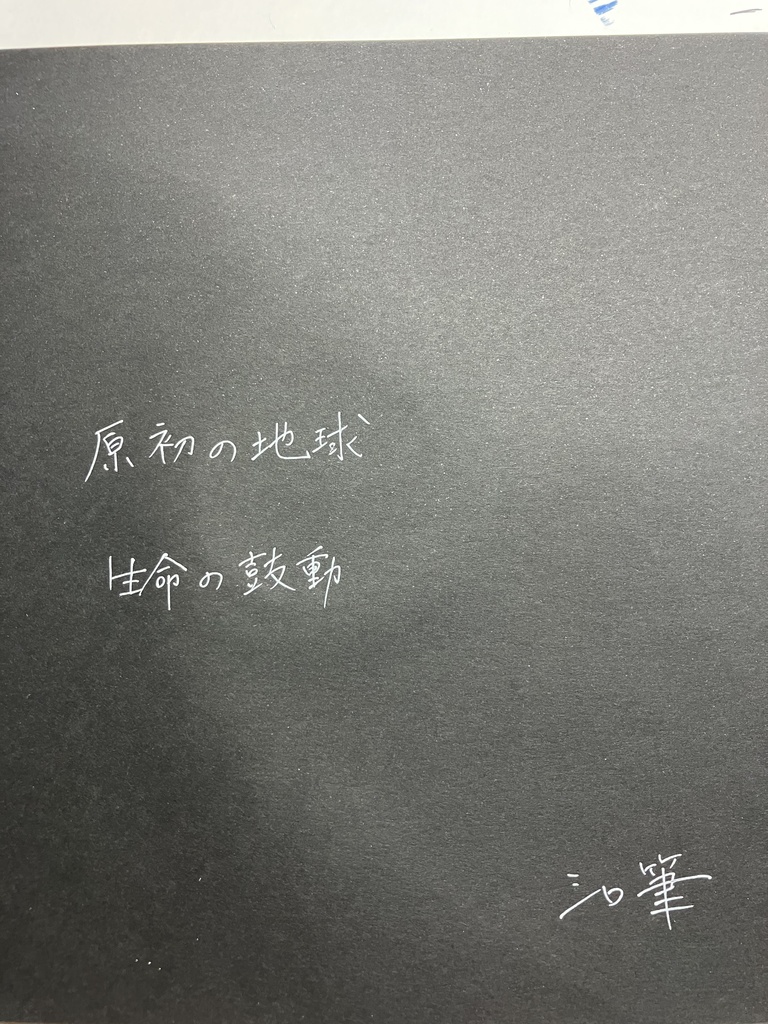 原初の地球
生命の鼓動
筆